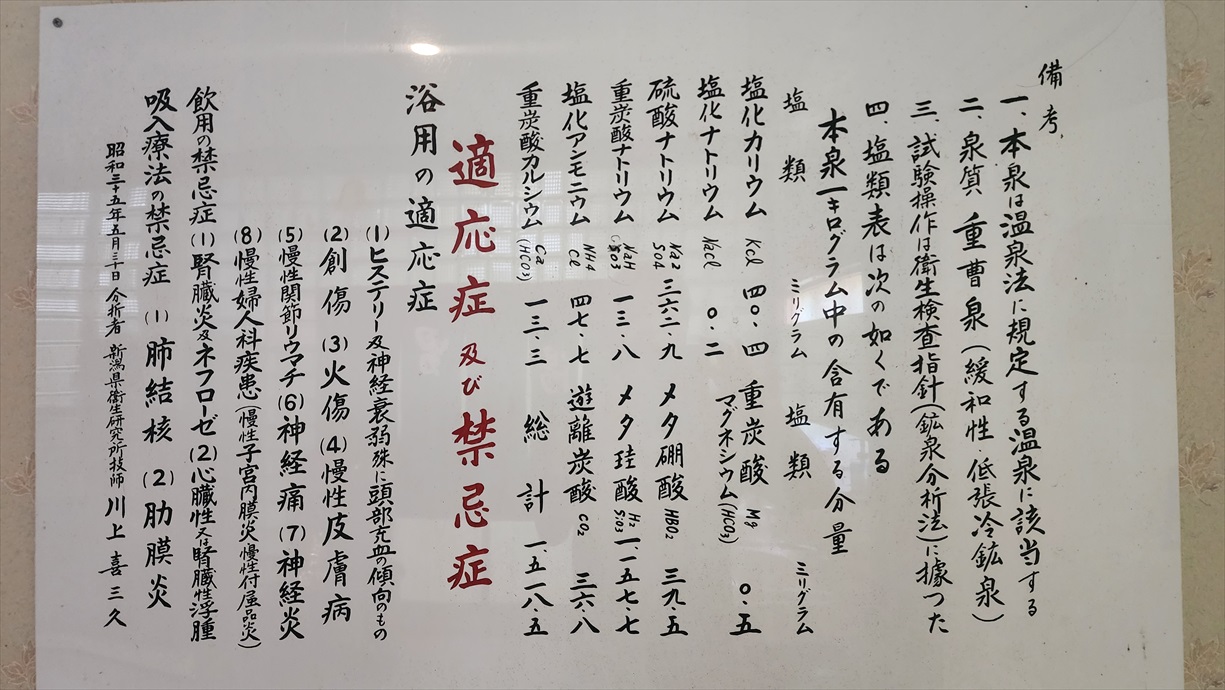 備考
一、本泉は温泉法に規定する温泉に該当する
二、泉質 重曹泉(緩和性・低張冷鉱泉)
三、試験操作は衛生検査指針(鉱泉分析法)に據つた
四、塩類表は次の如くである
本泉一キログラム中の含有する分量
塩類 ミリグラム 塩類 ミリグラム
塩化カリウム Kcl 四〇・四 重炭酸マグネシウム Mg(HCO3) 〇・五
塩化ナトリウム Nacl 〇・二 メタ硼酸 HBO2 三九・五
硫酸ナトリウム Na2SO4 三六二・九 メタ珪酸 H2SiO3 一、一五七・七
重炭酸ナトリウム 一三・八 遊離炭酸 CO2 三六・八
塩化アンモニウム NH4Cl 四七・七 総計 一、五一八・五
重炭酸カルシウム Ca(HCO3) 一三・三
適応症及び禁忌症
浴用の適応症
(1)ヒステリー及神経衰弱殊に頭部充血の傾向のもの
(2)創傷(3)火傷(4)慢性皮膚病
(5)慢性関節リウマチ(6)神経痛(7)神経炎
(8)慢性婦人科疾患(慢性子宮内膜炎・慢性付属品炎)
飲用の禁忌症(1)腎臓炎及ネフローゼ(2)心臓性又は腎臓性浮腫
吸入療法の禁忌症(1)肺結核(2)肋膜炎
昭和三十五年五月三十日 分析者 新潟県衛生研究所技師 川上喜三久